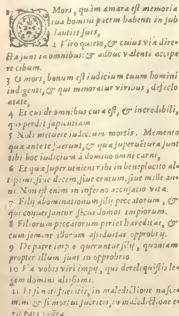 Mors, quàm amara est memoria
tua homini pacem habenti in sub
stantiis suis,
2 Viro quieto, & cuius viæ dire-
ctæ sunt in omnibus: & adhuc valenti accipe
re cibum.
3 O mors, bonum est iudicium tuum homini
indigenti, & qui minoratur viribus, defecto
ætate,
4 Et cui de omnibus cura est, & incredibili,
qui perdit sapientiam
5 Noli metuere iudicium mortis. Memento
quæ ante te fuerunt, & quæ superuentura sunt
tibi hoc iudicium à domino omni carni,
6 Et quæ superuenient tibi in beneplacito al-
tissimi, siue decem, siue centum, siue mille an-
ni Non est enim in inferno accusatio vitæ
7 Filij abominationum filij peccatorum, &
qui conuersantur secus domos impiorum.
8 Filiorum peccatorum periet hæreditas, &
cum semine illorum assiduitas opprobrij.
9 De patre impio queruntur filij, quoniam
propter illum sunt in opprobrio
10 Væ vobis viri impij, qui dereliquistis le-
gem domini altissimi.
11 Et si nati fueritis, in maledictione nasce-
mini & si mortui fueritis, in maledictione e-